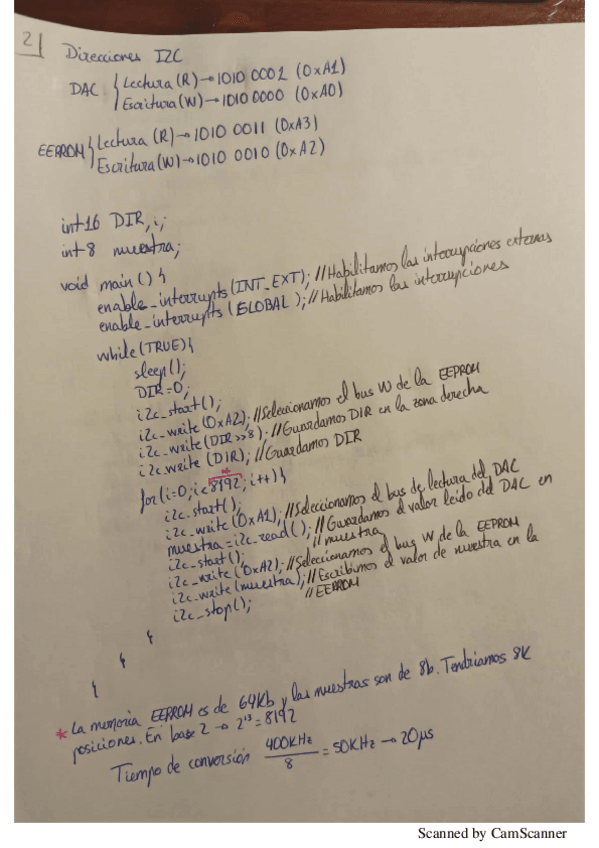 2
Direcciones I2C
DAC { Lectura (R) → 1010 0001 (0xA1)
Escritura (W) → 1010 0000 (0xA0)
EEPROM { Lectura (R) → 1010 0011 (0xA3)
Escritura (W) → 1010 0010 (0xA2)
int16 DIR, i;
int8 muestra;
void main() {
enable_interrupts (INT_EXT); //Habilitamos las interrupciones externas
enable_interrupts (GLOBAL); //Habilitamos las interrupciones
while(TRUE){
sleep();
DIR=0;
i2c_start();
i2c_write (0xA2); //Seleccionamos el bus W de la EEPROM
i2c_write (DIR>>8); //Guardamos DIR en la zona derecha
i2c_write (DIR); //Guardamos DIR
*
for(i=0; i<8192; i++){
i2c_start();
i2c_write (0xA1); //Seleccionamos el bus de lectura del DAC
muestra=i2c_read(); //Guardamos el valor leido del DAC en
//muestra
i2c_start();
i2c_write (0xA2); //Seleccionamos el bus W de la EEPROM
i2c_write (muestra); //Escribimos el valor de muestra en la
//EEPROM
i2c_stop();
}
}
}
* La memoria EEPROM es de 64Kb y las muestras son de 8b. Tendriamos 8K
posiciones. En base 2 → 2¹³=8192
Tiempo de conversión 400KHz/8 = 50KHz → 20μs
Scanned by CamScanner